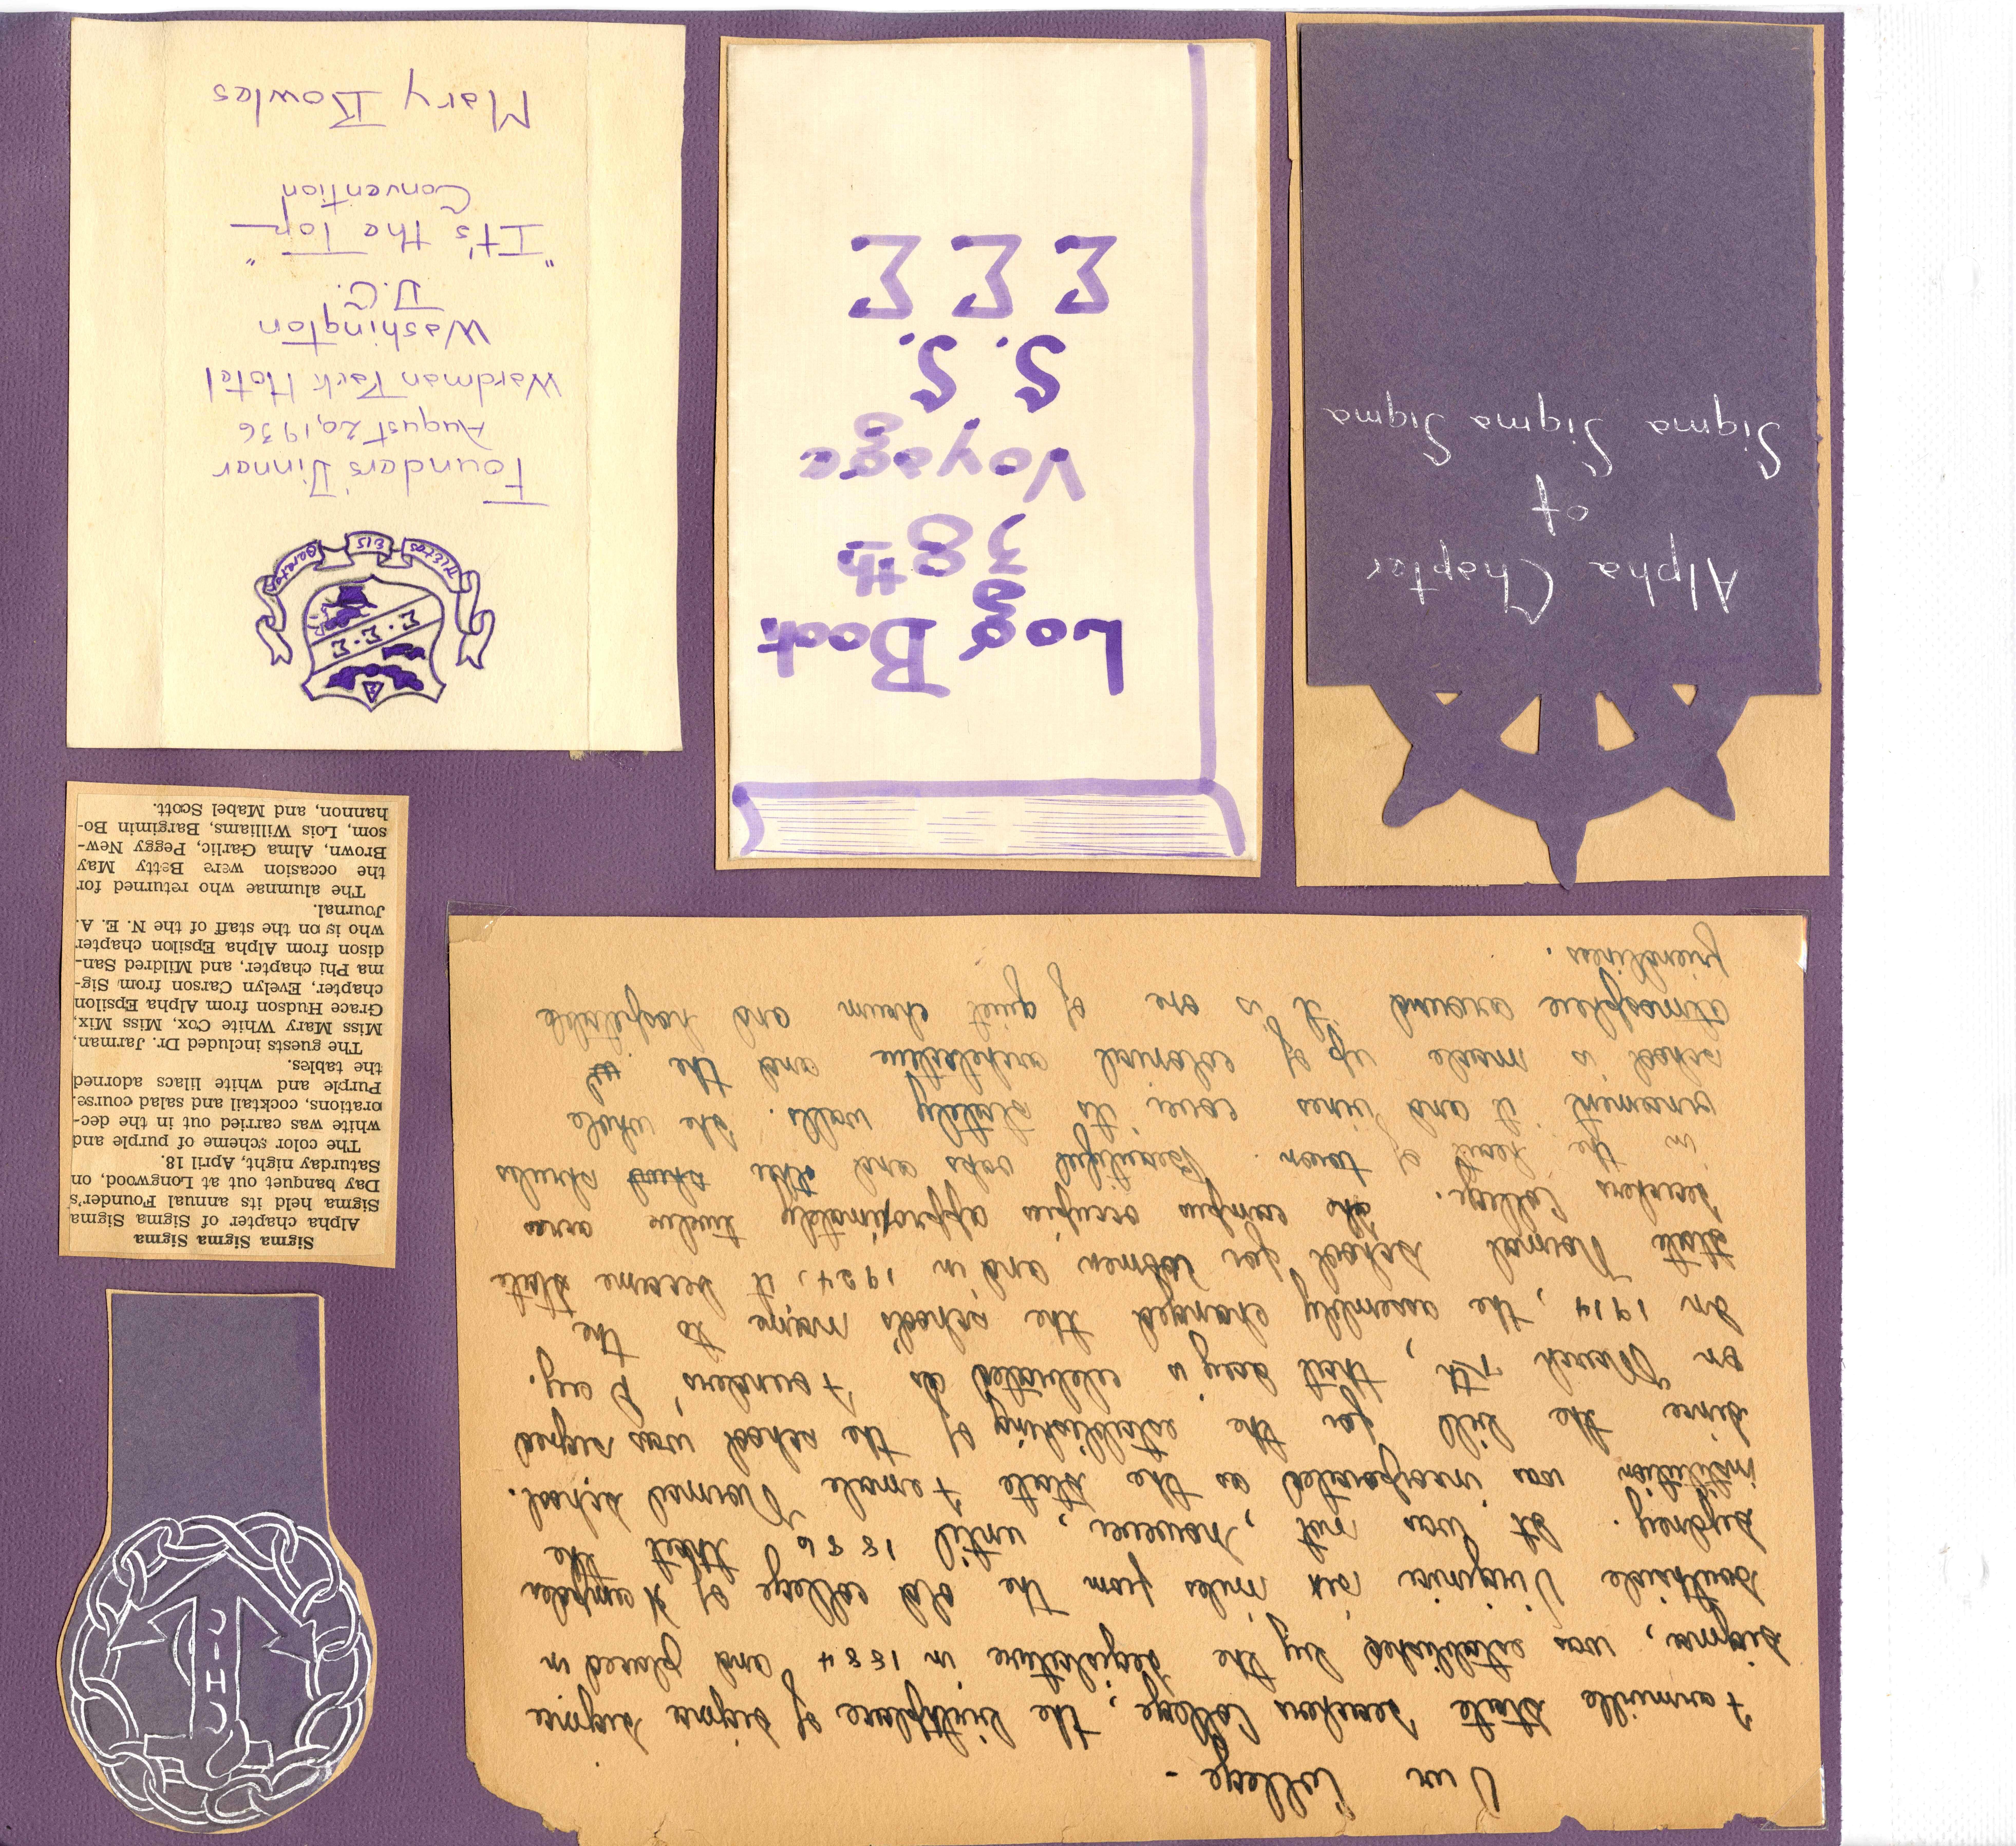 Our College -
Farmville State Teachers College, the birthplace of Sigma Sigma
Sigma, was established by the Legislature in 1884 and placed in
Southside Virginia six miles from the old college of Hampden
Sydney. It was not, however, until 1886 that the
institution was incorporated as the State Female Normal School.
Since the bill for the establishing of the school was signed
on March 7th, that day is celebrated as Founders' Day.
In 1914, the assembly changed the school's name to the
State Normal School for Women and in 1924, it became State
Teachers College. The campus occupies approximately twelve acres
in the heart of town. Beautiful oaks and other shrubs
ornament it and vines cover its stately walls. The whole
school is made up of colonial architecture and the
atmosphere around it is one of quiet charm and hospitable
friendliness.
Sigma Sigma Sigma
Alpha chapter of Sigma Sigma
Sigma held its annual Founder's
Day banquet out at Longwood, on
Saturday night, April 18.
The color scheme of purple and
white was carried out in the dec-
orations, cocktail and salad course.
Purple and white lilacs adorned
the tables.
The guests included Dr. Jarman,
Miss Mary White Cox, Miss Mix,
Grace Hudson from Alpha Epsilon
chapter, Evelyn Carson from Sig-
ma Phi chapter, and Mildred San-
dison from Alpha Epsilon chapter
who is on the staff of the N. E. A.
Journal.
The alumnae who returned for
the occasion were Betty May
Brown, Alma Garlic, Peggy New-
som, Lois Williams, Bargimin Bo-
hannon, and Mabel Scott.
Alpha Chapter
of
Sigma Sigma Sigma
Log Book
38th
Voyage
S. S.
Σ Σ Σ
EIS
Σ · Σ · Σ
Founders' Dinner
August 20, 1936
Wardman Park Hotel
Washington
D.C.
"It's the Top"
Convention
Mary Bowles